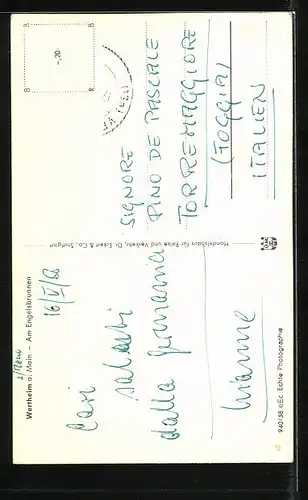 Wertheim a. Main – Am Engelsbrunnen
16/V/62
Cari
saluti
dalla Germania
Handelshaus für Reise und Verkehr, Dr. Eckert & Co., Stuttgart
940158 aEc Echte Photographie
-.20
SIGNORE
PINO DE PASCALE
TORREMAGGIORE
(FOGGIA)
ITALIEN